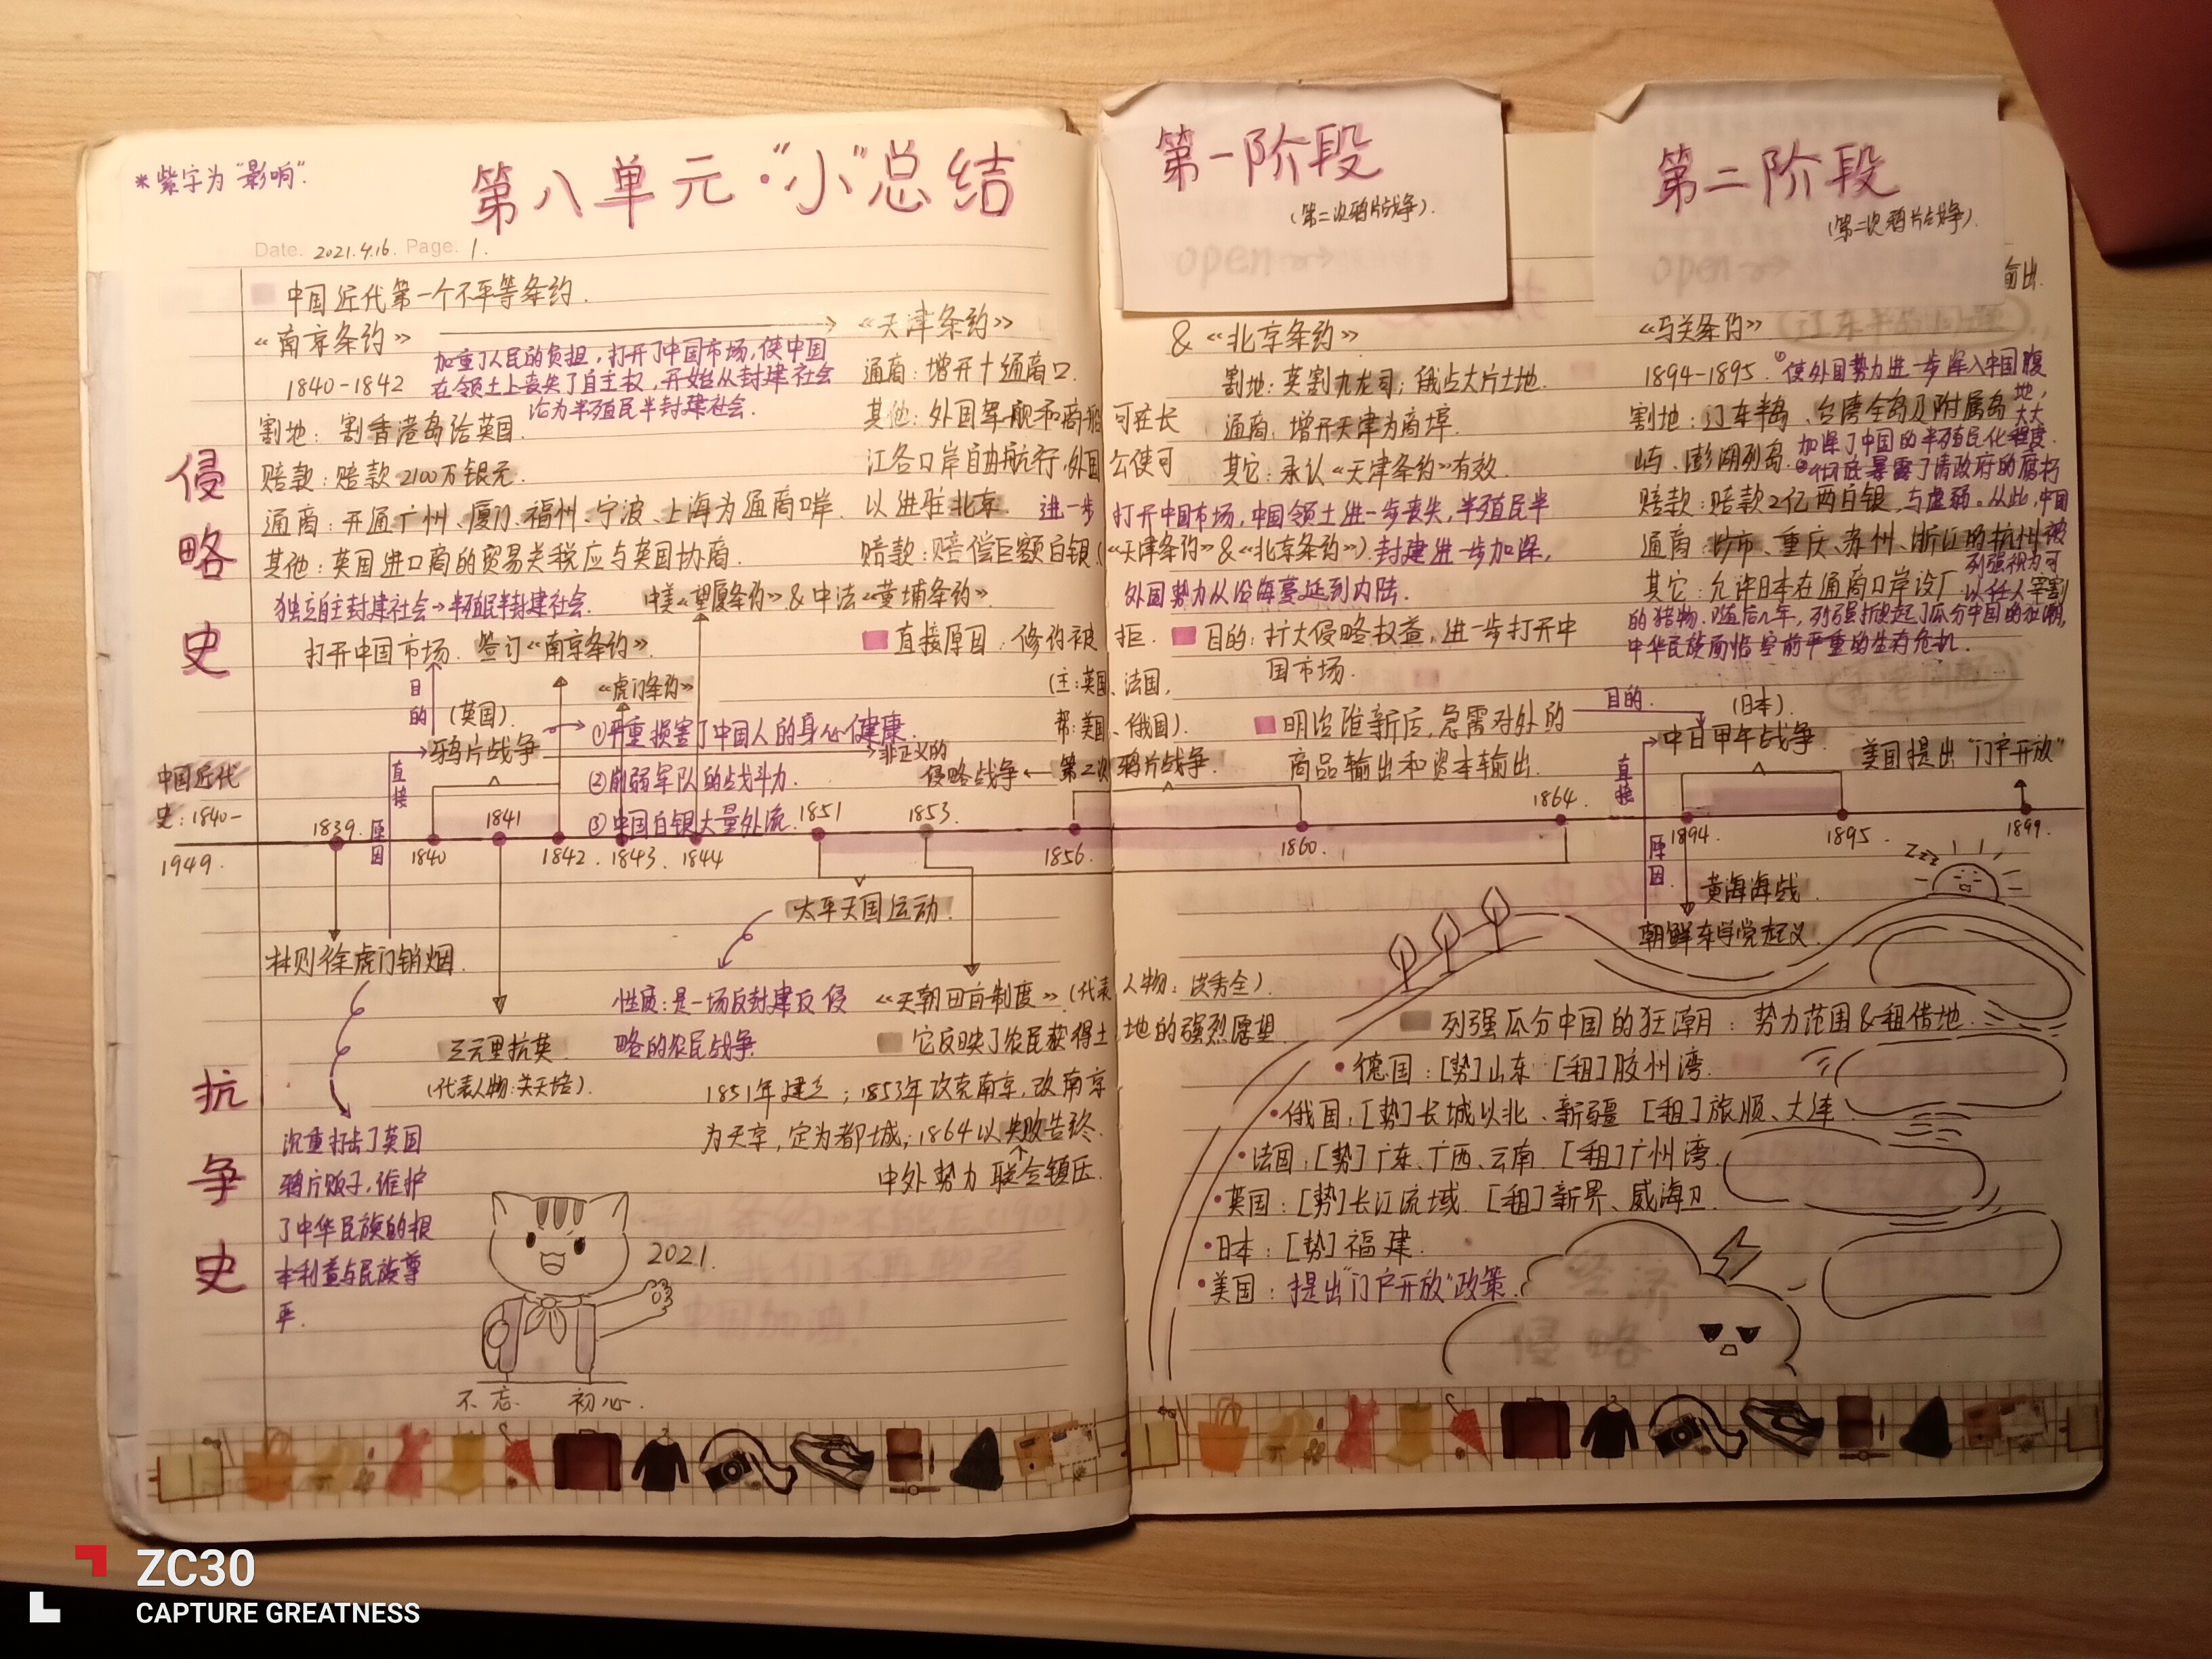 *紫字为"影响".
第八单元·"小"总结
Date. 2021.4.16. Page. 1.
中国近代第一个不平等条约.
《南京条约》
1840-1842
加重了人民的负担,打开了中国市场,使中国
在领土上丧失了自主权,开始从封建社会
沦为半殖民半封建社会.
割地:割香港岛给英国.
赔款:赔款2100万银元.
通商:开通广州、厦门、福州、宁波、上海为通商口岸.
其他:英国进口商的贸易关税应与英国协商.
独立自主封建社会→半殖民半封建社会.
《天津条约》
通商:增开十通商口.
其他:外国军舰和商船可在长
江各口岸自由航行,外国公使可
以进驻北京.
赔款:赔偿巨额白银(《天津条约》&《北京条约》).
&《北京条约》
割地:英割九龙司;俄占大片土地.
通商:增开天津为商埠.
其它:承认《天津条约》有效.
进一步打开中国市场,中国领土进一步丧失,半殖民半
封建进一步加深,
外国势力从沿海蔓延到内陆.
第一阶段
(第二次鸦片战争).
open
第二阶段
(第二次鸦片战争).
open
输出.
《马关条约》
1894-1895.
割地:辽东半岛、台湾全岛及附属岛
屿、澎湖列岛.
赔款:赔款2亿两白银.
通商:沙市、重庆、苏州、浙江的杭州
其它:允许日本在通商口岸设厂
①使外国势力进一步深入中国腹
地,大大
加深了中国的半殖民化程度.
②彻底暴露了清政府的腐朽
与虚弱。从此,中国
被
列强视为可
以任人宰割
的猎物.随后几年,列强掀起了瓜分中国的狂潮,
中华民族面临空前严重的生存危机.
侵略史
中美《望厦条约》&中法《黄埔条约》.
打开中国市场.
签订《南京条约》.
《虎门条约》
目的
(英国).
鸦片战争
①严重损害了中国人的身心健康.
②削弱军队的战斗力.
③中国白银大量外流.
非正义的
侵略战争←第二次鸦片战争.
直接原因:修约被拒.
(主:英国、法国,
帮:美国、俄国).
目的:扩大侵略权益,进一步打开中
国市场.
明治维新后,急需对外的
商品输出和资本输出.
目的.
(日本).
中日甲午战争.
美国提出"门户开放"
直接
原因
直接
原因.
中国近代
史:1840-
1949.
1839.
1840
1841
1842.
1843.
1844
1851
1853.
1856.
1860.
1864.
1894.
1895.
1899.
林则徐虎门销烟.
太平天国运动.
黄海海战.
朝鲜东学党起义.
抗争史
三元里抗英.
(代表人物:关天培).
沉重打击了英国
鸦片贩子,维护
了中华民族的根
本利益与民族尊
严.
性质:是一场反封建反侵
略的农民战争.
《天朝田亩制度》(代表人物:洪秀全).
它反映了农民获得土地的强烈愿望.
1851年建立;1853年攻克南京,改南京
为天京,定为都城;1864以失败告终.
中外势力联合镇压.
2021.
不忘 初心.
列强瓜分中国的狂潮:势力范围&租借地.
·德国:[势]山东 [租]胶州湾.
·俄国:[势]长城以北、新疆 [租]旅顺、大连
·法国:[势]广东、广西、云南 [租]广州湾.
·英国:[势]长江流域 [租]新界、威海卫.
·日本:[势]福建.
·美国:提出"门户开放"政策.
Zzz
经济
侵略
中国加油!
ZC30
CAPTURE GREATNESS